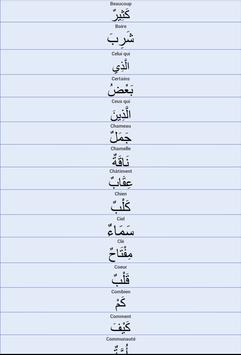 Beaucoup
كَثِيرٌ
Boire
شَرِبَ
Celui qui
الَّذِي
Certains
بَعْضُ
Ceux qui
الَّذِينَ
Chameau
جَمَلٌ
Chamelle
نَاقَةٌ
Châtiment
عِقَابٌ
Chien
كَلْبٌ
Ciel
سَمَاءٌ
Clé
مِفْتَاحٌ
Coeur
قَلْبٌ
Combien
كَمْ
Comment
كَيْفَ
Communauté